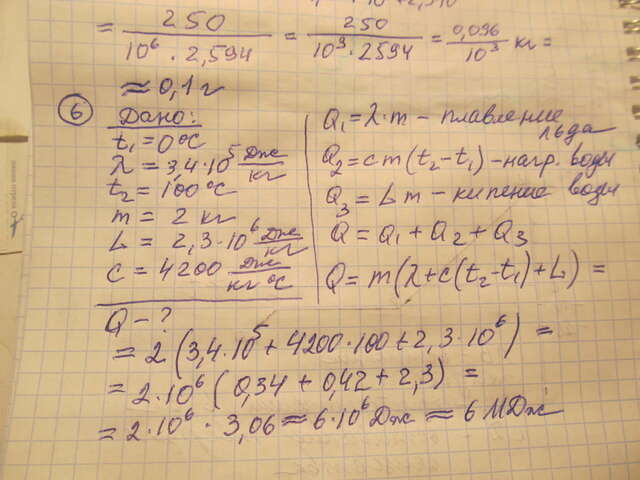 = 250 / 10⁶ · 2,594 = 250 / 10³ · 2594 = 0,096 / 10³ кг =
≈ 0,1 г
⑥ Дано:
t₁ = 0 °C
λ = 3,4 · 10⁵ Дж/кг
t₂ = 100 °C
m = 2 кг
L = 2,3 · 10⁶ Дж/кг
c = 4200 Дж/кг °C
Q – ?
Q₁ = λ · m – плавление
льда
Q₂ = c m (t₂ – t₁) – нагр. воды
Q₃ = L m – кипение воды
Q = Q₁ + Q₂ + Q₃
Q = m (λ + c (t₂ – t₁) + L) =
= 2 (3,4 · 10⁵ + 4200 · 100 + 2,3 · 10⁶) =
= 2 · 10⁶ (0,34 + 0,42 + 2,3) =
= 2 · 10⁶ · 3,06 ≈ 6 · 10⁶ Дж ≈ 6 МДж